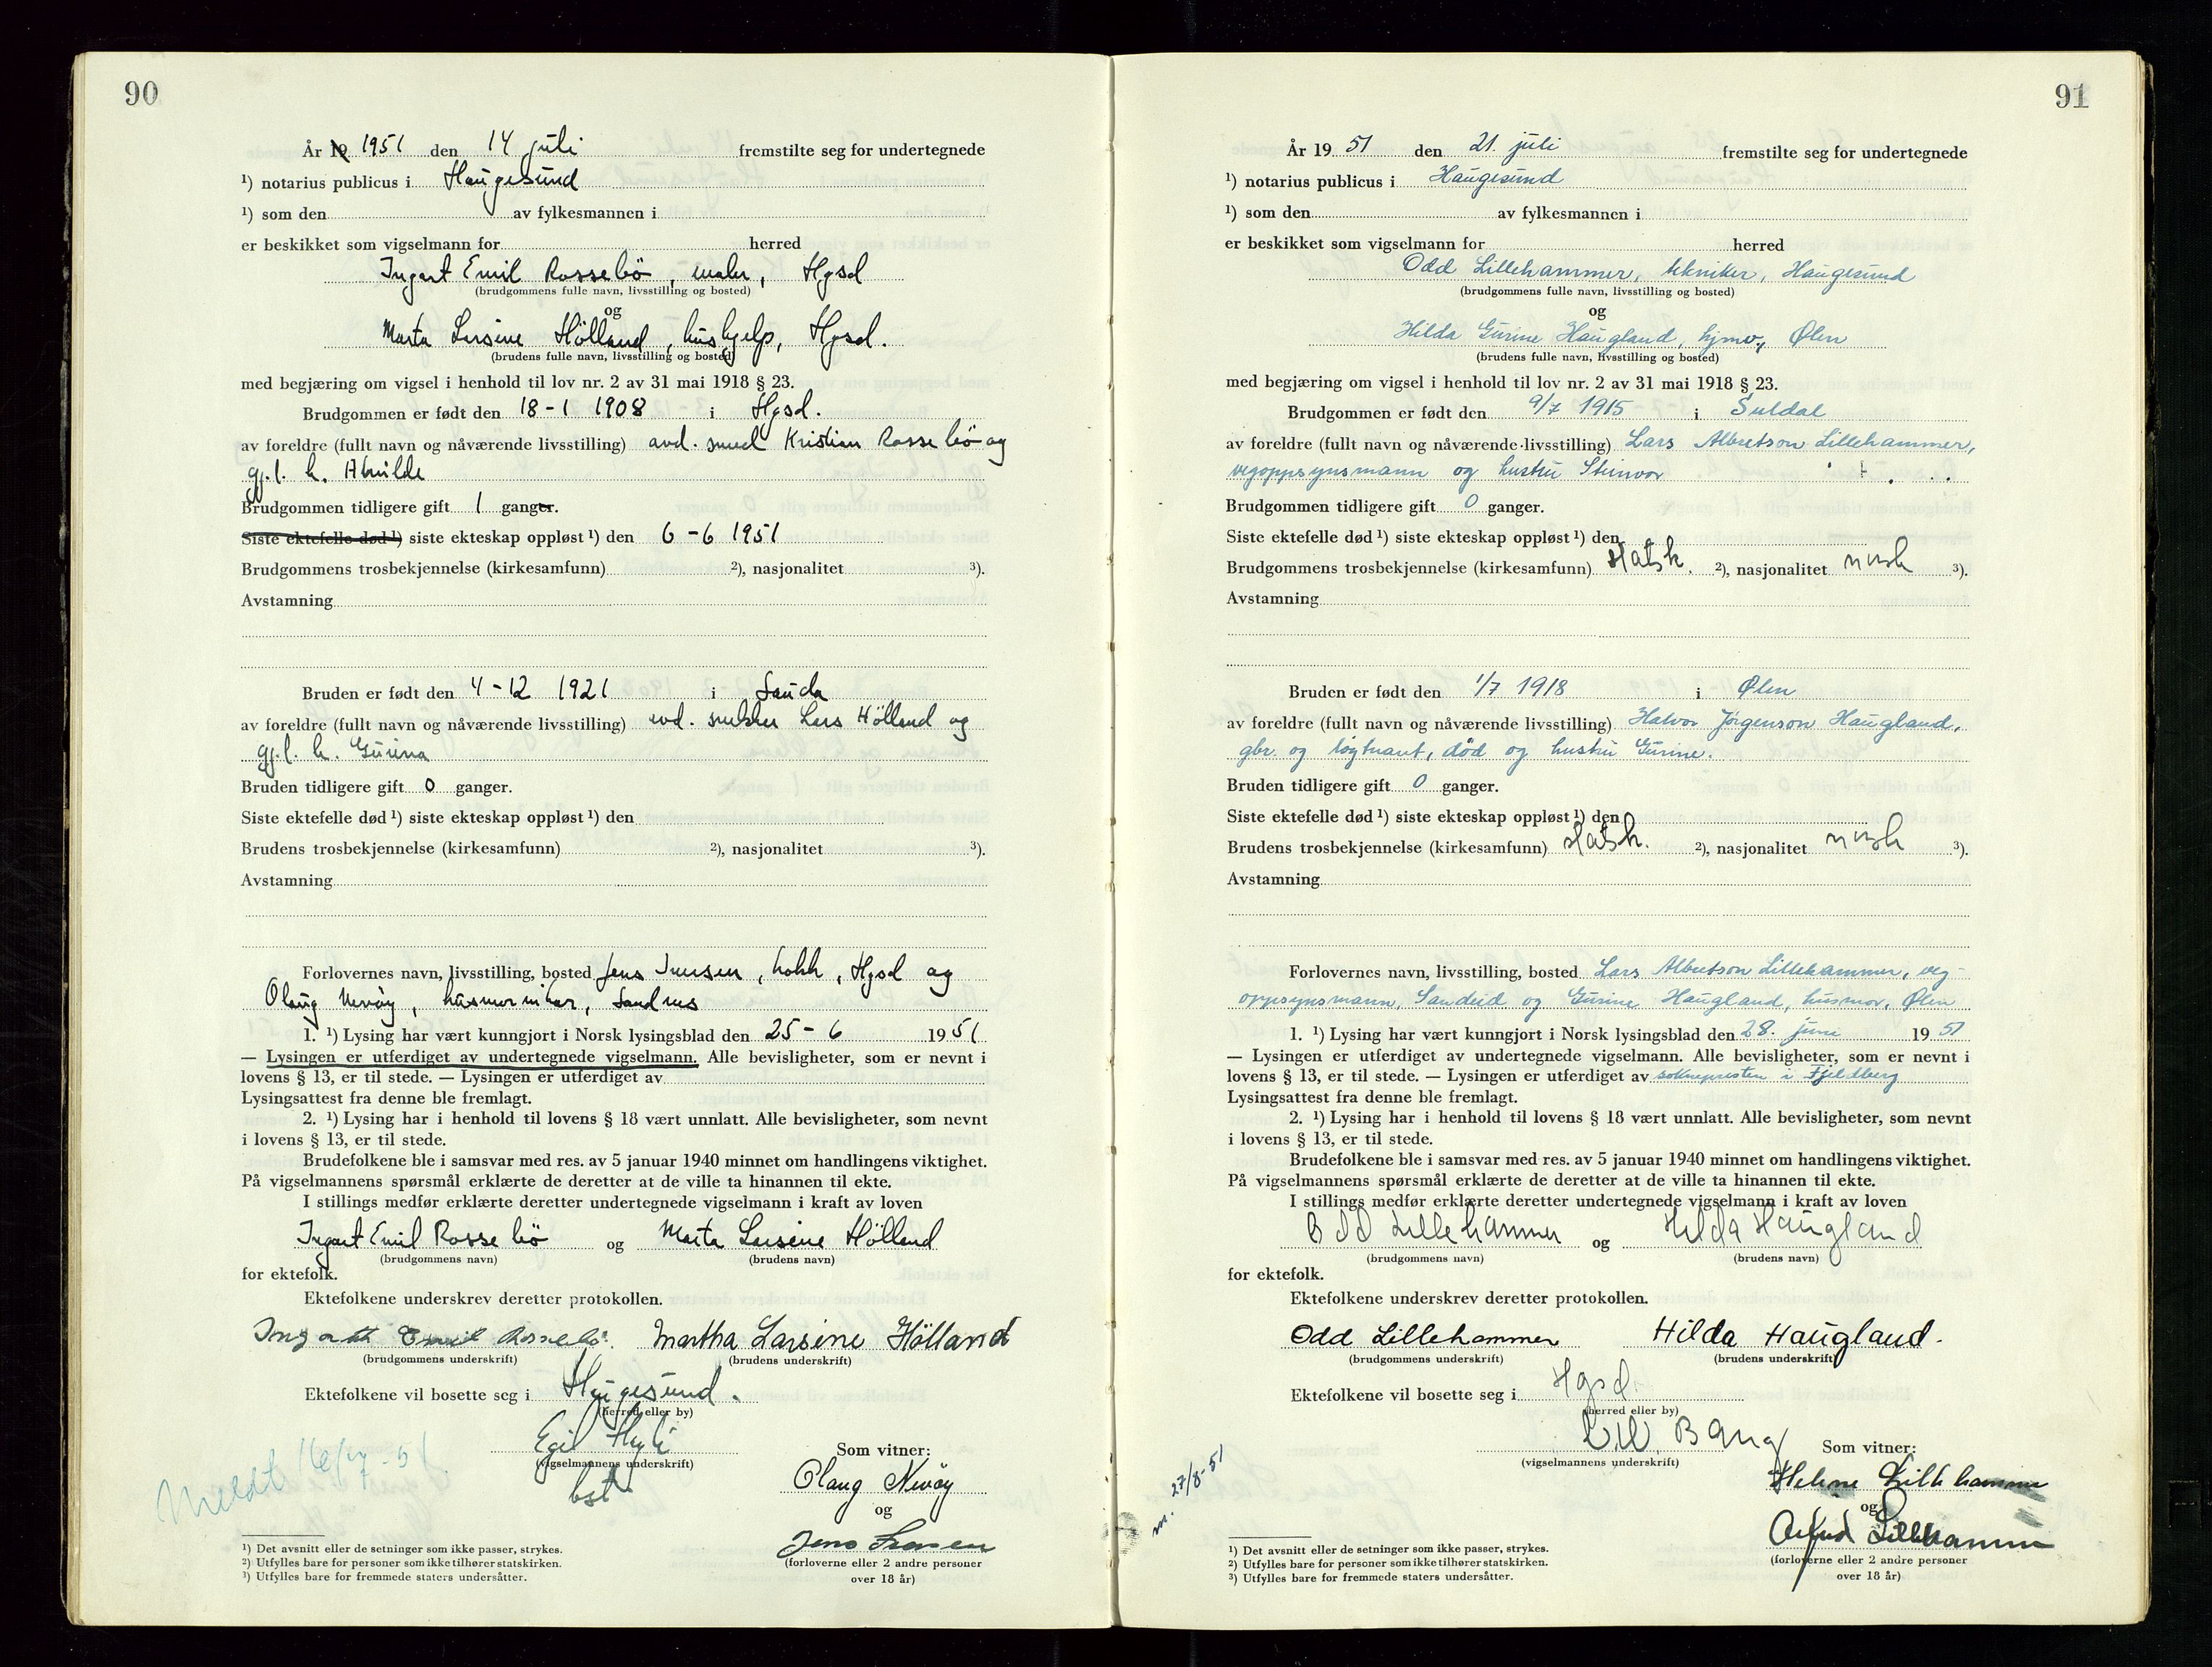 90
År 19 1951 den 14 juli fremstilte seg for undertegnede
¹) notarius publicus i Haugesund
¹) som den av fylkesmannen i
er beskikket som vigselmann for herred
Ingart Emil Rossebö, maler, Hgsd
(brudgommens fulle navn, livsstilling og bosted)
og
Marta Larsine Hölland, hushjelp, Hgsd.
(brudens fulle navn, livsstilling og bosted)
med begjæring om vigsel i henhold til lov nr. 2 av 31 mai 1918 § 23.
Brudgommen er født den 18-1 1908 i Hgsd.
av foreldre (fullt navn og nåværende livsstilling) avd. smed Kristian Rossebö og
gj.l. h. Alvilde
Brudgommen tidligere gift 1 ganger.
Siste ektefelle død ¹) siste ekteskap oppløst ¹) den 6-6 1951
Brudgommens trosbekjennelse (kirkesamfunn) ²), nasjonalitet ³).
Avstamning
Bruden er født den 4-12 1921 i Sauda
av foreldre (fullt navn og nåværende livsstilling) avd. snekker Lars Hölland og
gj.l. h. Gurina
Bruden tidligere gift 0 ganger.
Siste ektefelle død ¹) siste ekteskap oppløst ¹) den
Brudens trosbekjennelse (kirkesamfunn) ²), nasjonalitet ³).
Avstamning
Forlovernes navn, livsstilling, bosted Jens , kokk, Hgsd og
Olaug Nevöy, husmorvikar, Sandnes
1. ¹) Lysing har vært kunngjort i Norsk lysingsblad den 25-6 1951
— Lysingen er utferdiget av undertegnede vigselmann. Alle bevisligheter, som er nevnt i
lovens § 13, er til stede. — Lysingen er utferdiget av
Lysingsattest fra denne ble fremlagt.
2. ¹) Lysing har i henhold til lovens § 18 vært unnlatt. Alle bevisligheter, som nevnt
i lovens § 13, er til stede.
Brudefolkene ble i samsvar med res. av 5 januar 1940 minnet om handlingens viktighet.
På vigselmannens spørsmål erklærte de deretter at de ville ta hinannen til ekte.
I stillings medfør erklærte deretter undertegnede vigselmann i kraft av loven
Ingart Emil Rossebö og Marta Larsine Hölland
(brudgommens navn) (brudens navn)
for ektefolk.
Ektefolkene underskrev deretter protokollen.
Ingarth Emil Rossebö. Martha Larsine Hölland
(brudgommens underskrift) (brudens underskrift)
Ektefolkene vil bosette seg i Haugesund.
(herred eller by)
Egil
(vigselmannens underskrift)
bst
Meldt 16/7-51
Som vitner:
Olaug Nevöy
og
Jens
(forloverne eller 2 andre personer
over 18 år)
¹) Det avsnitt eller de setninger som ikke passer, strykes.
²) Utfylles bare for personer som ikke tilhører statskirken.
³) Utfylles bare for fremmede staters undersåtter.
91
År 19 51 den 21. juli fremstilte seg for undertegnede
¹) notarius publicus i Haugesund
¹) som den av fylkesmannen i
er beskikket som vigselmann for herred
Odd Lillehammer, tekniker, Haugesund
(brudgommens fulle navn, livsstilling og bosted)
og
Hilda Gurine Haugland, hjmv., Ølen
(brudens fulle navn, livsstilling og bosted)
med begjæring om vigsel i henhold til lov nr. 2 av 31 mai 1918 § 23.
Brudgommen er født den 9/7 1915 i Suldal
av foreldre (fullt navn og nåværende livsstilling) Lars Albretson Lillehammer,
vegoppsynsmann og hustru Steinvor
Brudgommen tidligere gift 0 ganger.
Siste ektefelle død ¹) siste ekteskap oppløst ¹) den
Brudgommens trosbekjennelse (kirkesamfunn) statsk. ²), nasjonalitet norsk ³).
Avstamning
Bruden er født den 1/7 1918 i Ølen
av foreldre (fullt navn og nåværende livsstilling) Halvor Jørgenson Haugland,
gbr. og løytnant, død og hustru Gurine.
Bruden tidligere gift 0 ganger.
Siste ektefelle død ¹) siste ekteskap oppløst ¹) den
Brudens trosbekjennelse (kirkesamfunn) statsk. ²), nasjonalitet norsk ³).
Avstamning
Forlovernes navn, livsstilling, bosted Lars Albretson Lillehammer, veg-
oppsynsmann, Sandeid og Gurine Haugland, husmor, Ølen
1. ¹) Lysing har vært kunngjort i Norsk lysingsblad den 28. juni 1951
— Lysingen er utferdiget av undertegnede vigselmann. Alle bevisligheter, som er nevnt i
lovens § 13, er til stede. — Lysingen er utferdiget av soknepresten i Fjeldberg
Lysingsattest fra denne ble fremlagt.
2. ¹) Lysing har i henhold til lovens § 18 vært unnlatt. Alle bevisligheter, som nevnt
i lovens § 13, er til stede.
Brudefolkene ble i samsvar med res. av 5 januar 1940 minnet om handlingens viktighet.
På vigselmannens spørsmål erklærte de deretter at de ville ta hinannen til ekte.
I stillings medfør erklærte deretter undertegnede vigselmann i kraft av loven
Odd Lillehammer og Hilda Haugland
(brudgommens navn) (brudens navn)
for ektefolk.
Ektefolkene underskrev deretter protokollen.
Odd Lillehammer Hilda Haugland.
(brudgommens underskrift) (brudens underskrift)
Ektefolkene vil bosette seg i Hgsd.
(herred eller by)
Bang
(vigselmannens underskrift)
m. 27/8-51
Som vitner:
Helene Lillehammer
og
Lillehammer
(forloverne eller 2 andre personer
over 18 år)
¹) Det avsnitt eller de setninger som ikke passer, strykes.
²) Utfylles bare for personer som ikke tilhører statskirken.
³) Utfylles bare for fremmede staters undersåtter.